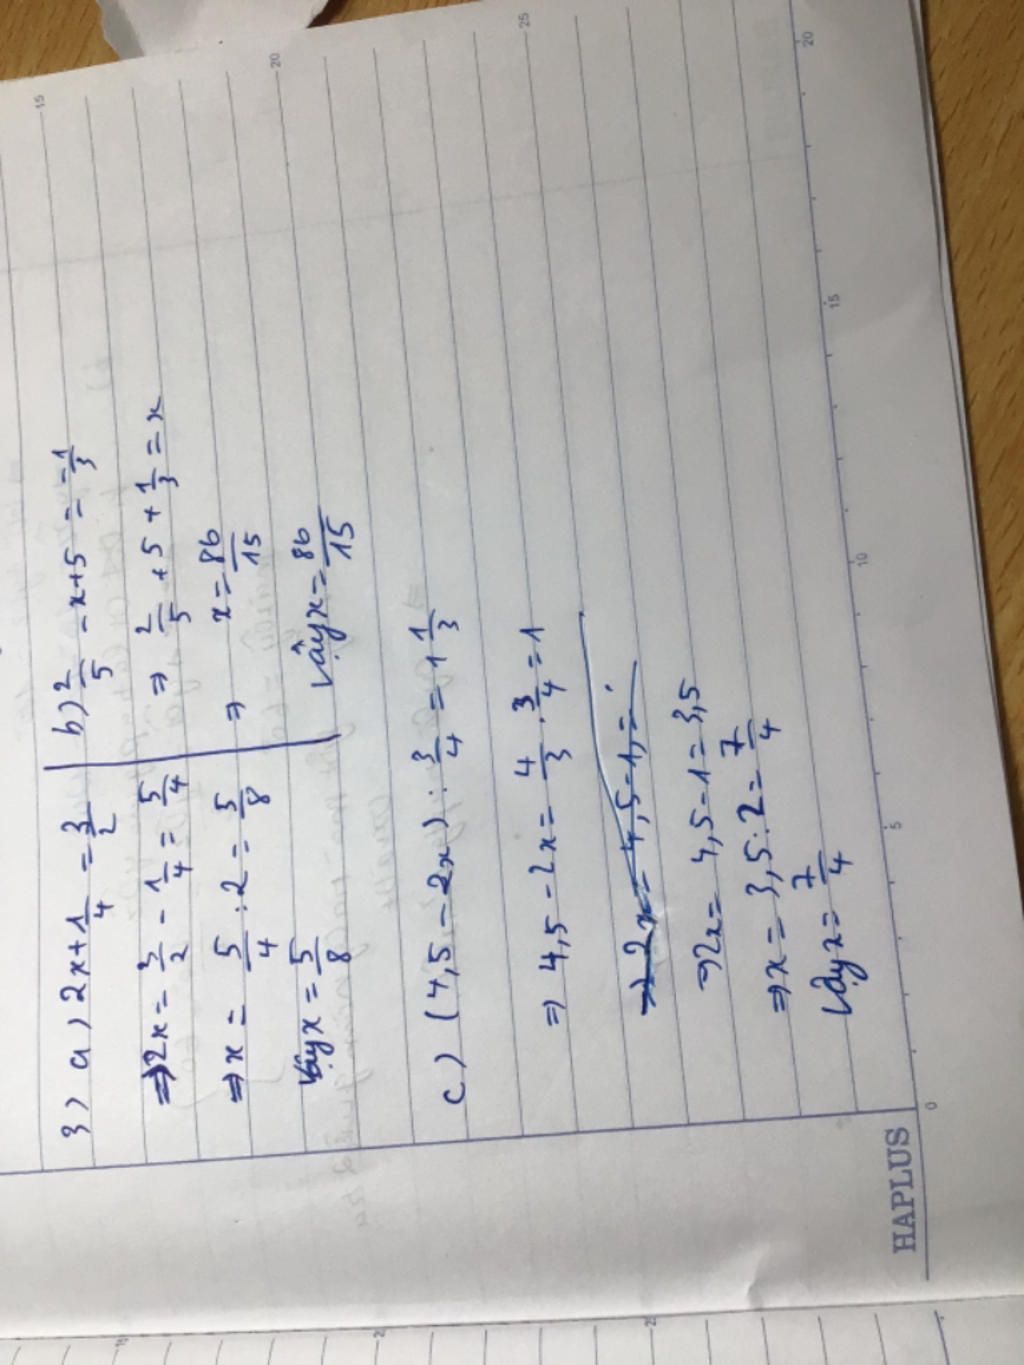 3) a) 2x + 1/4 = 3/2
⇒ 2x = 3/2 - 1/4 = 5/4
⇒ x = 5/4 : 2 = 5/8
Vậy x = 5/8
b) 2/5 - x + 5 = -1/3
⇒ 2/5 + 5 + 1/3 = x
⇒ x = 86/15
Vậy x = 86/15
c) (4,5 - 2x) : 3/4 = 1 1/3
⇒ 4,5 - 2x = 4/3 . 3/4 = 1
⇒ 2x = 4,5 - 1, =
⇒ 2x = 4,5 - 1 = 3,5
⇒ x = 3,5 : 2 = 7/4
Vậy x = 7/4
HAPLUS
0 5 10 15 20
15 20 25